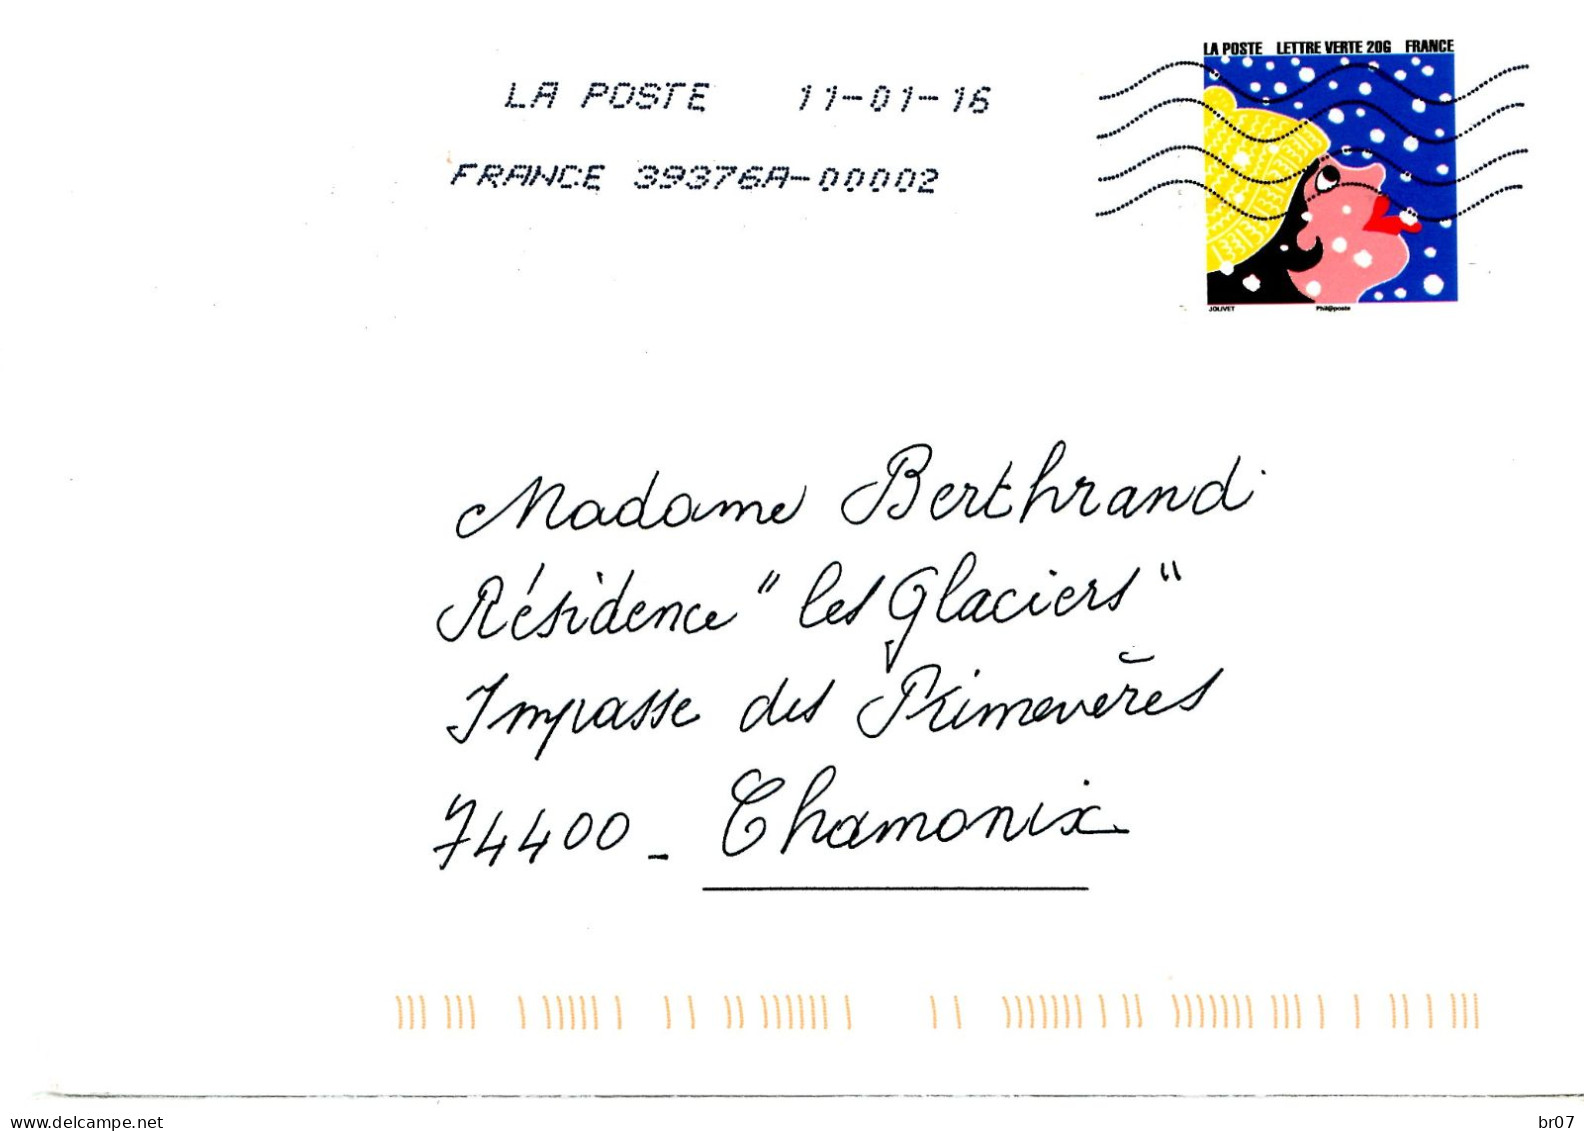 LA POSTE LETTRE VERTE 20G FRANCE
LA POSTE 11-01-16
FRANCE 39376A-00002
JOLIVET Phil@poste
Madame Berthrand
Résidence "les Glaciers"
Impasse des Primevères
74400 - Chamonix
www.delcampe.net br07